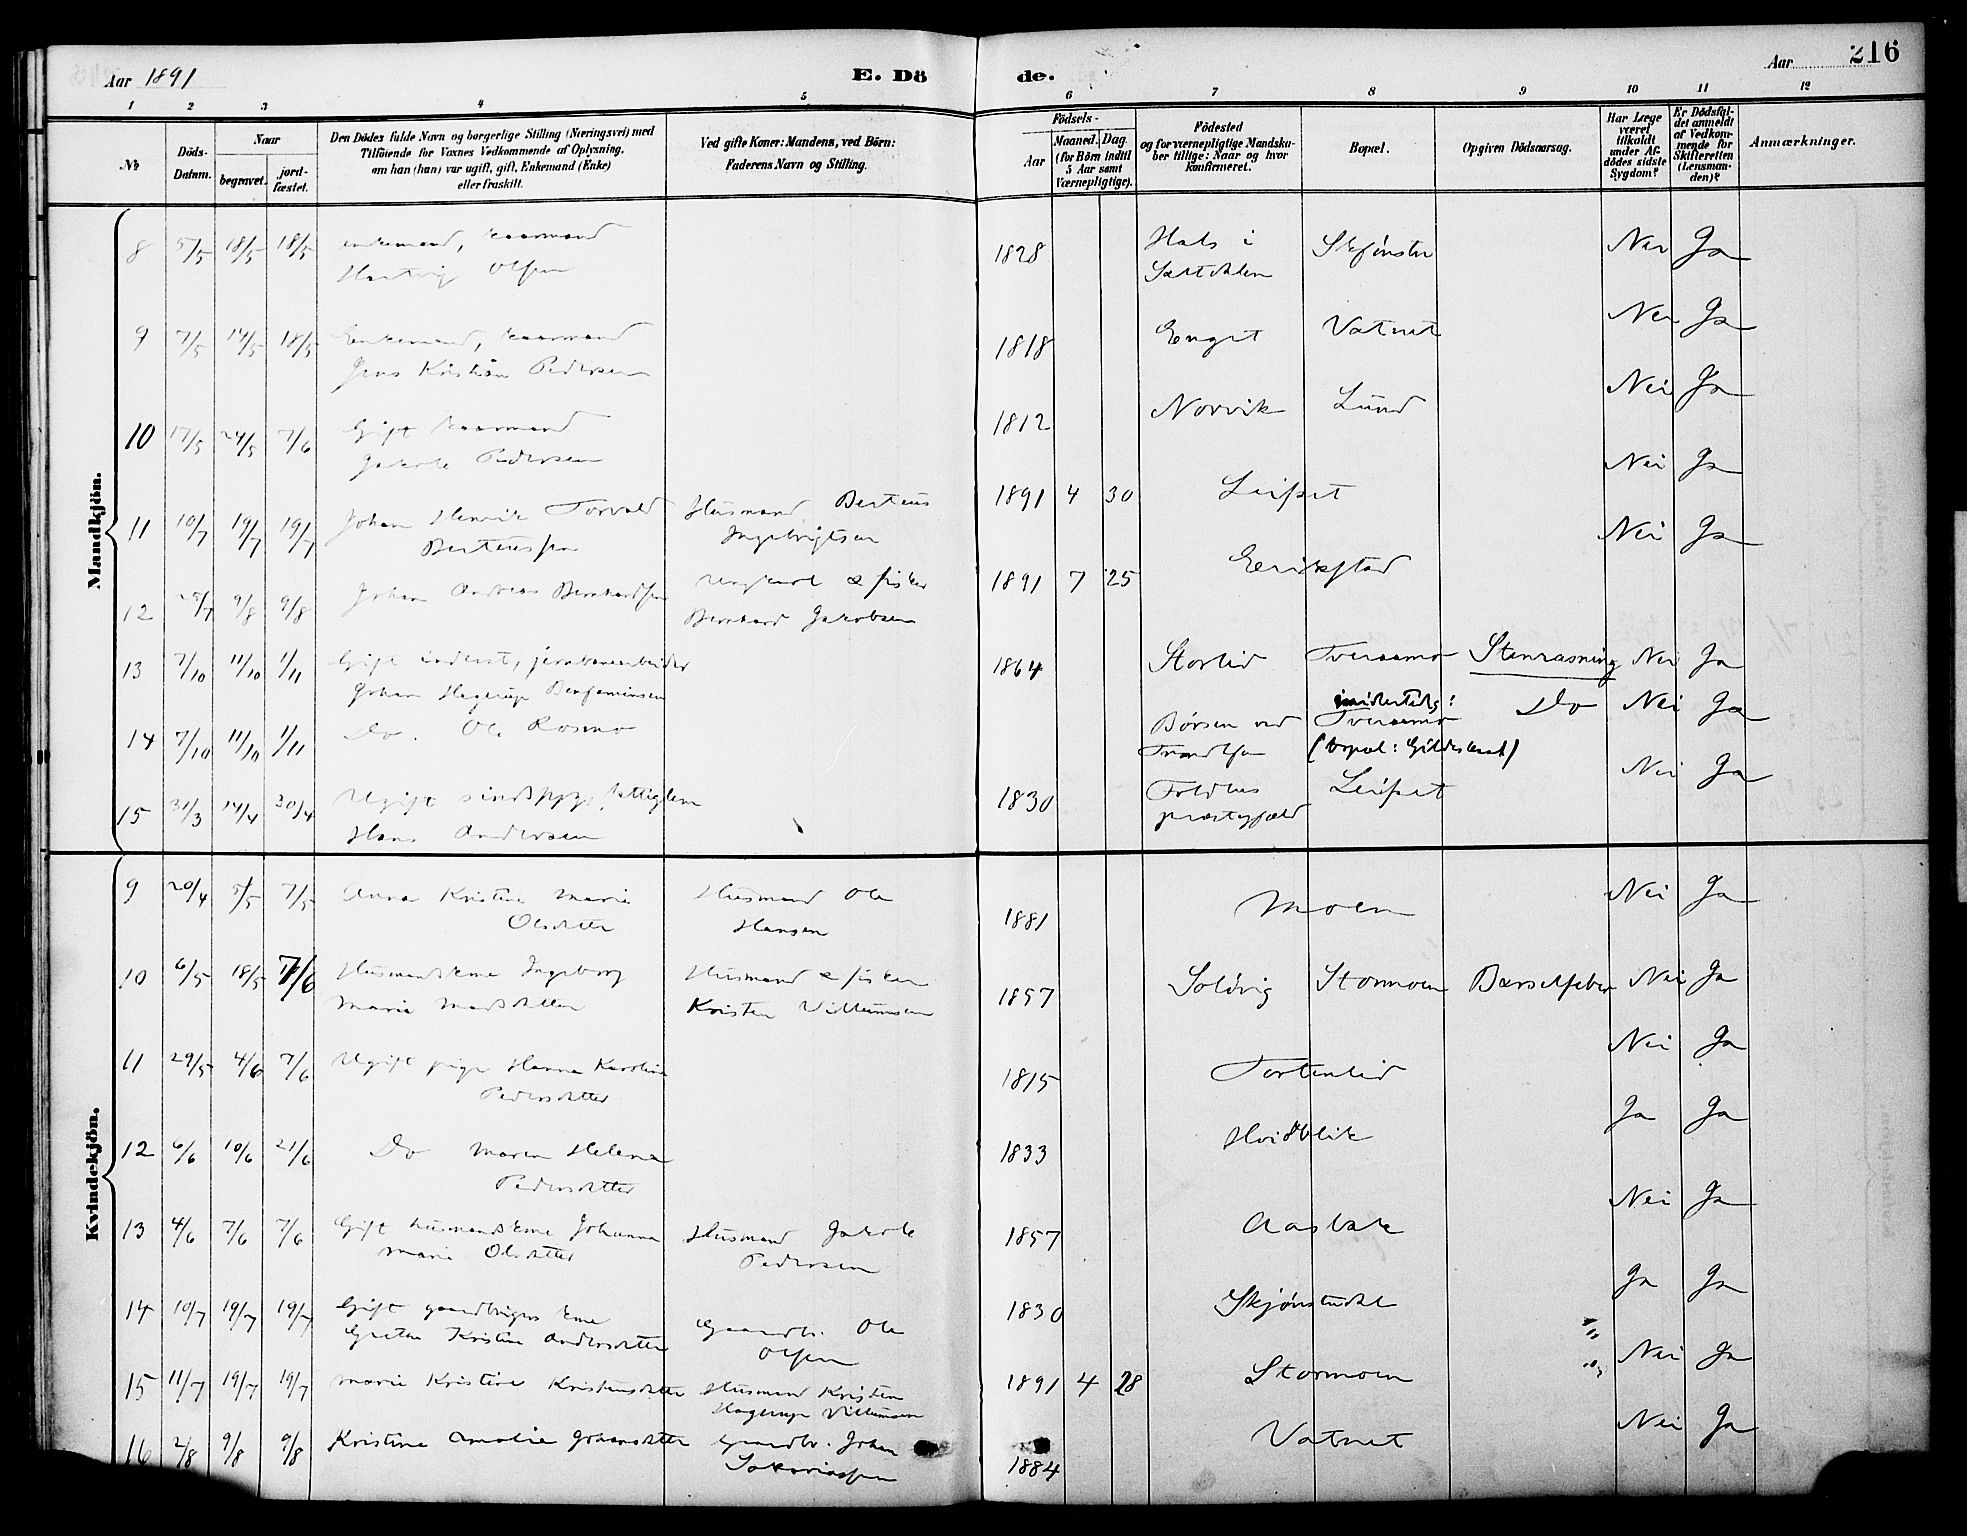 Aar 1891
E. Dö
de.
Aar
216
1 2 3 4 5 6 7 8 9 10 11 12
№
Döds-Datum.
Naar
begravet.
jord-fæstet.
Den Dödes fulde Navn og borgerlige Stilling (Næringsvei) med
Tilföiende for Voxnes Vedkommende af Oplysning,
om han (hun) var ugift, gift, Enkemand (Enke)
eller fraskilt.
Ved gifte Koner: Mandens, ved Börn:
Faderens Navn og Stilling.
Födsels-
Aar
Maaned. Dag.
(for Börn indtil
5 Aar samt
Værnepligtige).
Födested
og for værnepligtige Mandska-
ber tillige: Naar og hvor
konfirmeret.
Bopæl.
Opgiven Dödsaarsag.
Har Læge
været
tilkaldt
under Af-
dödes sidste
Sygdom?
Er Dödsfal-
det anmeldt
af Vedkom-
mende for
Skifteretten
(Lensman-
den)?
Anmærkninger.
Mandkjön.
8 5/5 18/5 18/5 enkemand, kaarmand 1828 Hals i Skjønstu Nei Ja
Hartvig Olsen
9 7/5 14/5 18/5 Enkemand, kaarmand 1818 Enget Vatnet Nei Ja
Jens Kristian Pedersen
10 17/5 24/5 7/6 Gift kaarmand 1812 Norvik Lund Nei Ja
Jakob Pedersen
11 10/7 19/7 19/7 Johan Henrik Torvald Husmand Berteus 1891 4 30 Leifset Nei Ja
Berteussen Ingebrigtsen
12 9/8 9/8 Johan Andreas Bernhardsen Ungkarl & fisker 1891 7 25 Erikstad Nei Ja
Bernhard Jakobsen
13 7/10 11/10 1/11 Gift inderst, jernbanearbeider 1864 Storlid Tveraamo Stenrasning Nei Ja
Johan Hagerup Benjaminsen
14 7/10 11/10 1/11 Do. Ole Rosmo Børsen ved midlertidig: Do Nei Ja
Tveraamo
(bopæl: Gildeskaal)
15 31/3 14/4 30/4 Ugift sindssyg, fattiglem 1830 Foldens Leifset Nei Ja
Hans Andersen præstegjeld
Kvindekjön.
9 20/4 5/5 7/5 Anna Kristine Marie Husmand Ole 1881 Moen Nei Ja
Olsdatter Hansen
10 6/5 18/5 7/6 Husmandskone Ingeborg Husmand & fisker 1857 Solvig Stormoen Barselfeber Nei Ja
Marie Madsdatter Kristen Villumsen
11 29/5 4/6 7/6 Ugift pige Hanna Karolina 1815 Tortenlid Nei Ja
Pedersdatter
12 6/6 10/6 21/6 Do Maren Helena 1833 Hvidblik Ja Ja
Pedersdatter
13 4/6 7/6 7/6 Gift husmandskone Johanna Husmand Jakob 1857 Aasbak Nei Ja
Marie Olsdatter Pedersen
14 10/7 19/7 19/7 Gift gaardbrugers kone Gaardbr. Ole 1830 Skjønstudal Ja Ja
Grethe Kristine Andersdatter Olsen
15 11/7 19/7 19/7 Marie Kristine Kristensdatter Husmand Kristen 1891 4 28 Stormoen Nei Ja
Hagerup Villumsen
16 2/8 9/8 9/8 Kristine Amalie Johansdatter Gaardbr. Johan 1884 Vatnet Nei Ja
Sakariassen